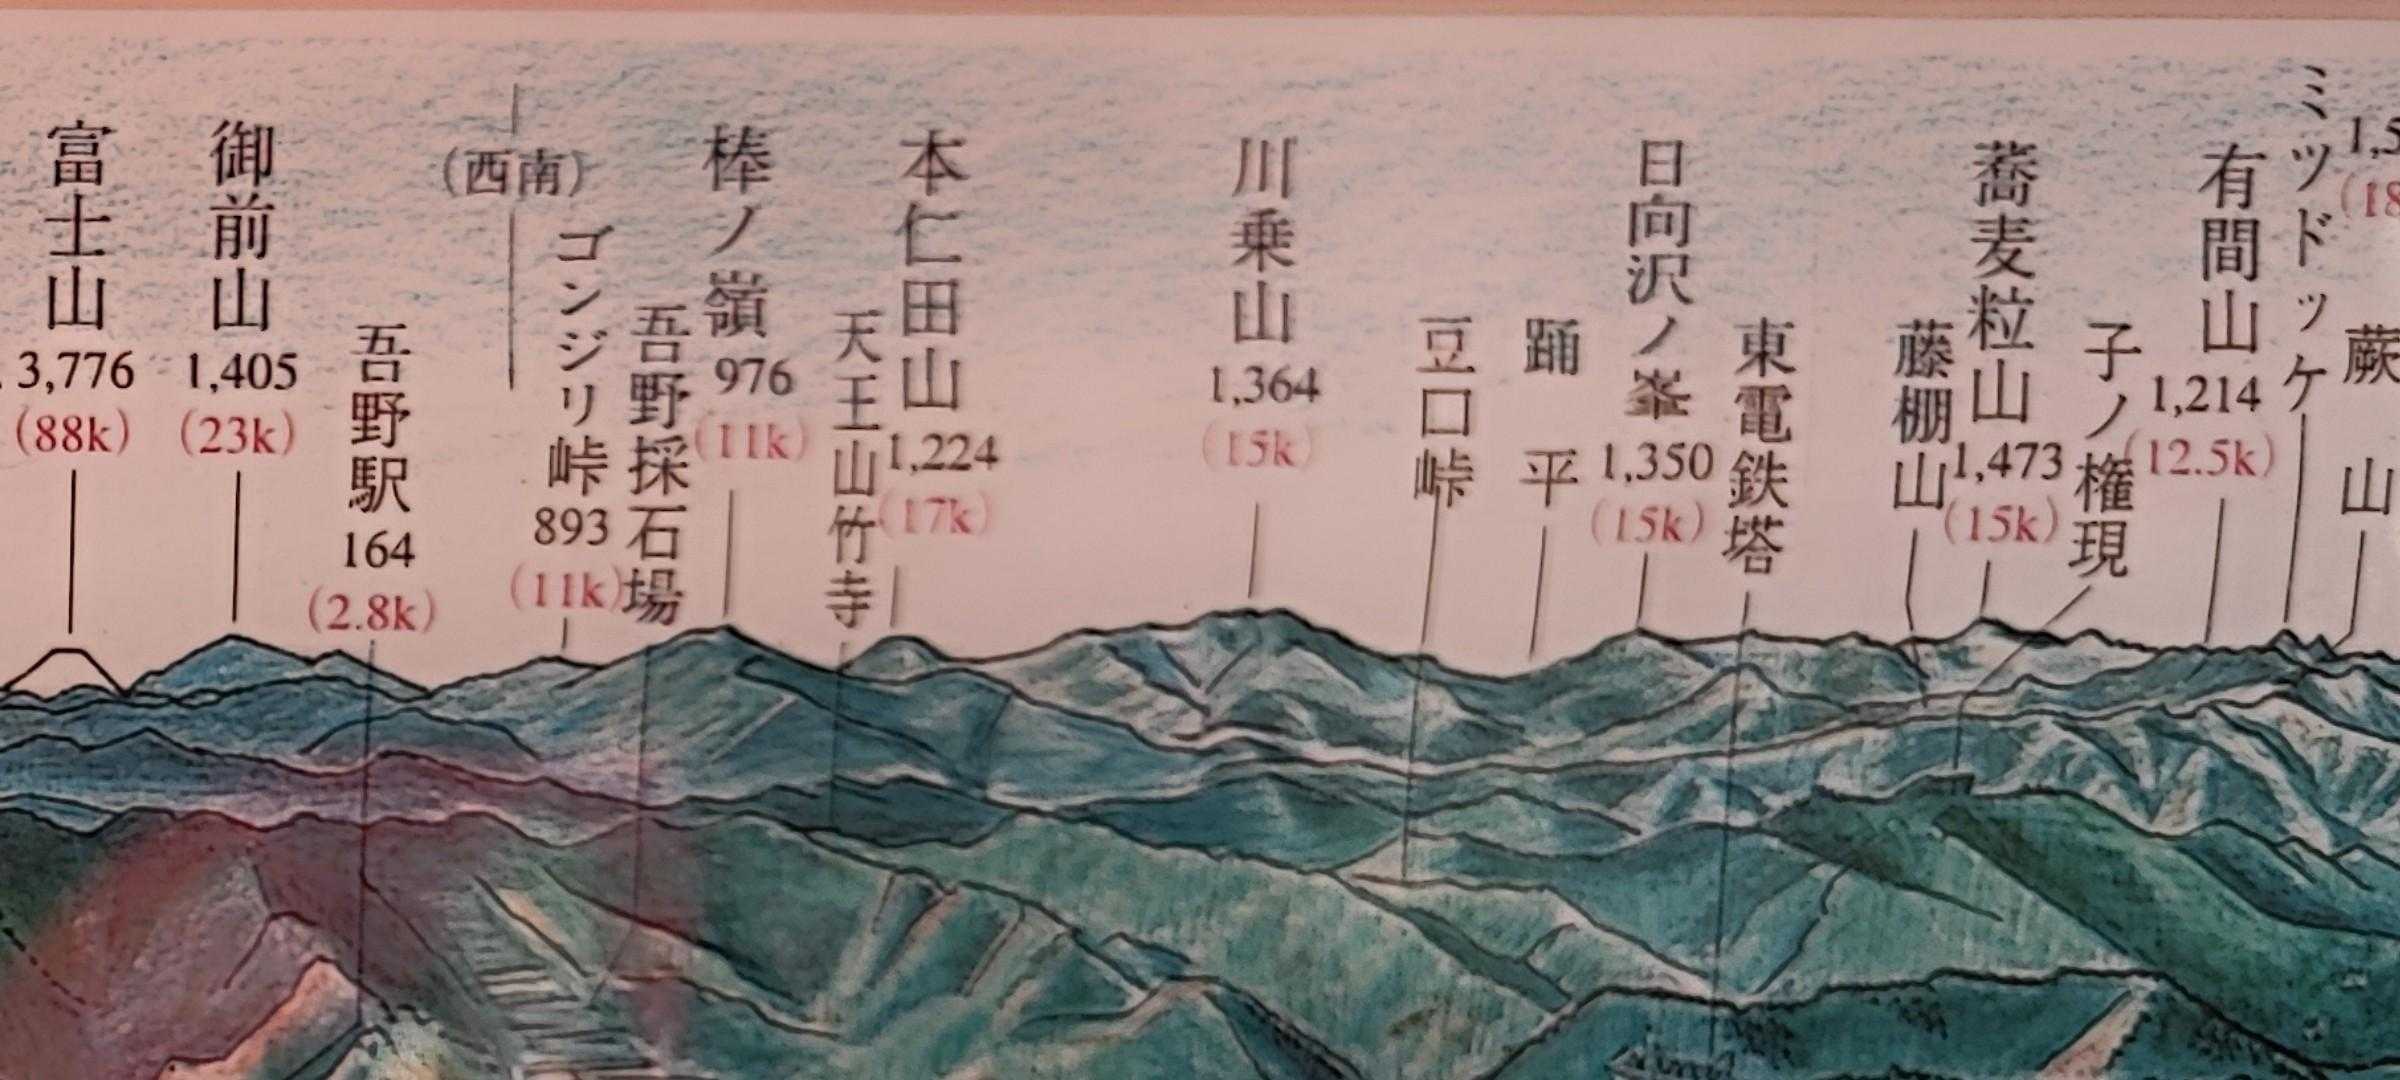 富士山
3,776
(88k)
御前山
1,405
(23k)
吾野駅
164
(2.8k)
(西南)
ゴンジリ峠
893
(11k)
吾野採石場
棒ノ嶺
976
(11k)
天王山竹寺
本仁田山
1,224
(17k)
川乗山
1,364
(15k)
豆口峠
踊平
日向沢ノ峯
1,350
(15k)
東電鉄塔
藤棚山
蕎麦粒山
1,473
(15k)
子ノ権現
有間山
1,214
(12.5k)
ミツドッケ
1,5
(18
蕨山